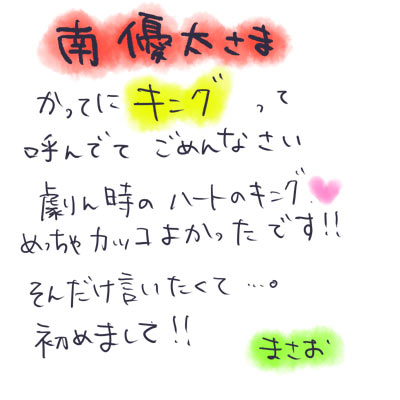 南 優太さま
かってに キング って
呼んでて ごめんなさい
劇りん時の ハートのキング
めっちゃ カッコよかった です!!
そんだけ言いたくて …。
初めまして!!
まさお